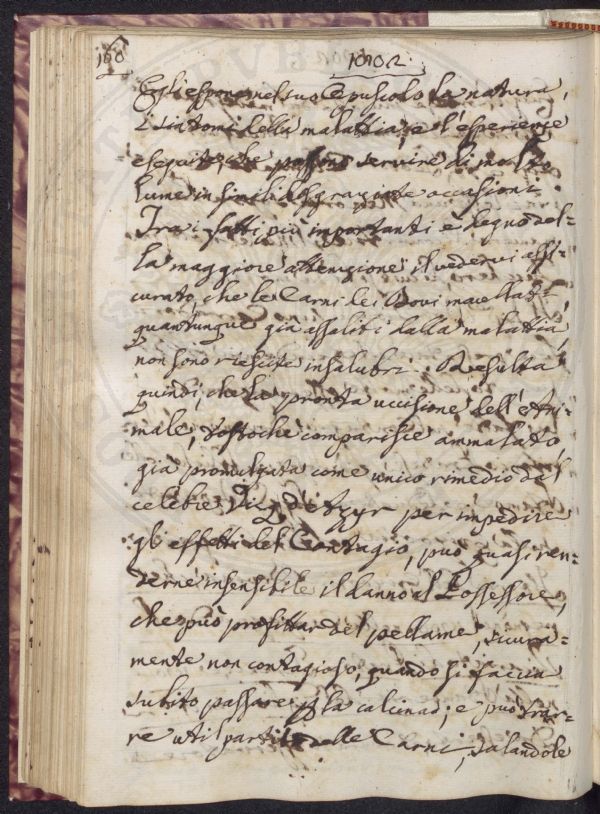 160
Egli espone nel suo Opuscolo la natura,
i sintomi della malattia, e l'esperienze
eseguite, che possono servire di molto
lume in simili disgraziate occasioni.
Tra i fatti più importanti è degno del-
la maggiore attenzione il vedervi assi-
curato, che le Carni dei Bovi macellati,
quantunque già assaliti dalla malattia,
non sono riescite insalubri. Resulta
quindi, che la pronta uccisione dell'Ani-
male, tostoche comparisce ammalato
già promulgata come unico rimedio dal
celebre Vicq d'Azyr per impedire
gli effetti del Contagio, può quasi ren-
derne insensibile il danno al Possessore,
che può profittar del pellame, sicura-
mente non contagioso, quando si faccia
subito passare p la calcina; e può trar-
re util partito delle Carni, salandole